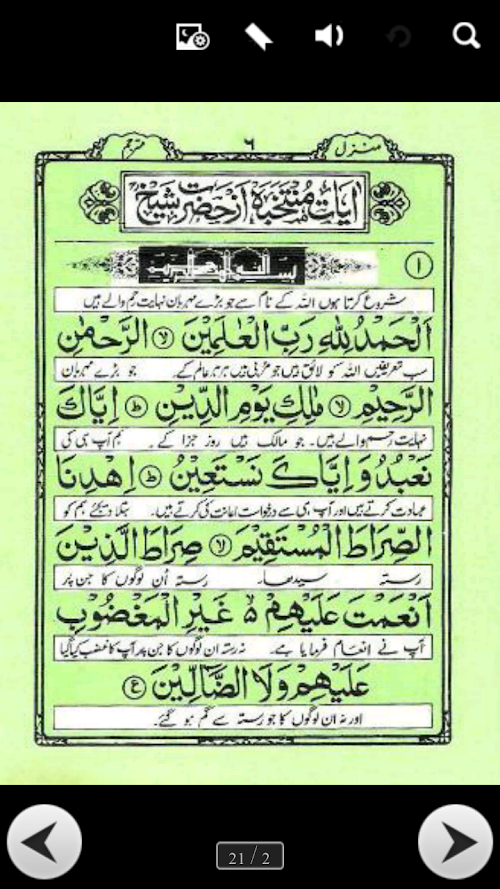 منزل ٦ مترجم
اٰیَاتِ مُنْتَخَبَہ اَزْ حَضْرَتْ شَیْخْ
١
شروع کرتا ہوں اللہ کے نام سے جو بڑے مہربان نہایت رحم والے ہیں
اَلْحَمْدُ لِلّٰهِ رَبِّ الْعٰلَمِيْنَ ۙ الرَّحْمٰنِ
سب تعریفیں اللہ کو لائق ہیں جو مربّی ہیں ہر ہر عالم کے۔ جو بڑے مہربان
الرَّحِيْمِ ۙ مٰلِكِ يَوْمِ الدِّيْنِ ؕ اِيَّاكَ
نہایت رحم والے ہیں۔ جو مالک ہیں روز جزا کے۔ ہم آپ ہی کی
نَعْبُدُ وَ اِيَّاكَ نَسْتَعِيْنُ ؕ اِهْدِنَا
عبادت کرتے ہیں اور آپ ہی سے درخواست اعانت کی کرتے ہیں۔ بتلا دیجئے ہم کو
الصِّرَاطَ الْمُسْتَقِيْمَ ۙ صِرَاطَ الَّذِيْنَ
رستہ سیدھا۔ رستہ اُن لوگوں کا جن پر
اَنْعَمْتَ عَلَيْهِمْ ۵ غَيْرِ الْمَغْضُوْبِ
آپ نے انعام فرمایا ہے۔ نہ رستہ ان لوگوں کا جن پر آپ کا غضب کیا گیا
عَلَيْهِمْ وَلَا الضَّآلِّيْنَ ع
اور نہ ان لوگوں کا جو رستہ سے گم ہو گئے۔
21 / 2